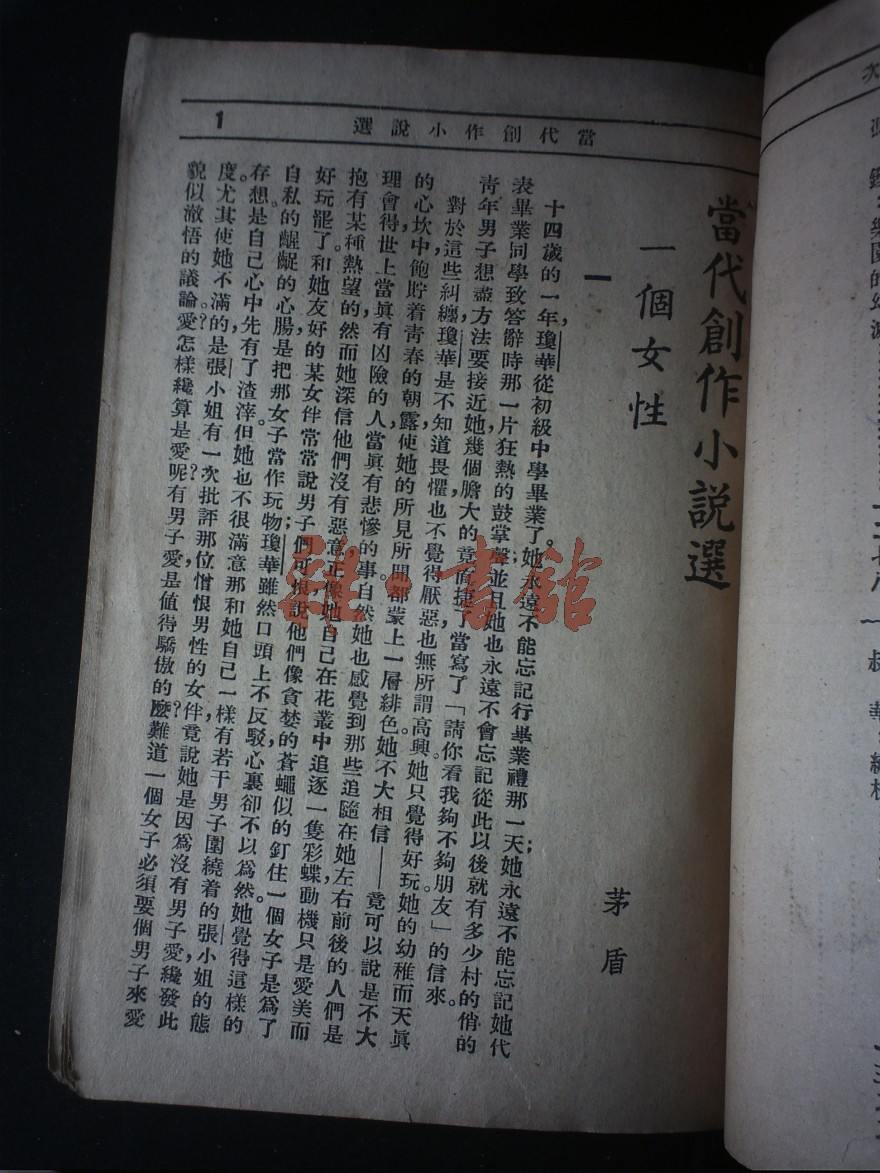 當代創作小說選
1
當代創作小說選
一個女性
茅盾
一
十四歲的一年，瓊華從初級中學畢業了。她永遠不能忘記行畢業禮那一天；她永遠不能忘記她代
表畢業同學致答辭時那一片狂熱的鼓掌聲；並且她也永遠不會忘記從此以後就有多少村的俏的
青年男子想盡方法要接近她，幾個膽大的竟直捷了當寫了「請你看我夠不夠朋友」的信來。
對於這些糾纏，瓊華是不知道畏懼，也不覺得厭惡，也無所謂高興。她只覺得好玩。她的幼稚而天眞
的心坎中飽貯着青春的朝露，使她的所見所聞都蒙上一層緋色。她不大相信——竟可以說是不大
理會得世上當眞有凶險的人，當眞有悲慘的事。自然她也感覺到那些追隨在她左右前後的人們是
抱有某種熱望的，然而她深信他們沒有惡意，正像她自己在花叢中追逐一隻彩蝶，動機只是愛美而
好玩罷了。和她友好的某女伴常常說男子們可恨，說他們像貪婪的蒼蠅似的釘住一個女子是爲了
自私的齷齪的心腸，是把那女子當作玩物；瓊華雖然口頭上不反駁，心裏卻不以爲然。她覺得這樣的
存想是自己心中先有了渣滓。但她也不很滿意那和她自己一樣有若干男子圍繞着的張小姐的態
度。尤其使她不滿的，是張小姐有一次批評那位憎恨男性的女伴，竟說她是因爲沒有男子愛纔發此
貌似澈悟的議論。愛？怎樣纔算是愛呢？有男子愛是值得驕傲的麼？難道一個女子必須要個男子來愛
雜·書館